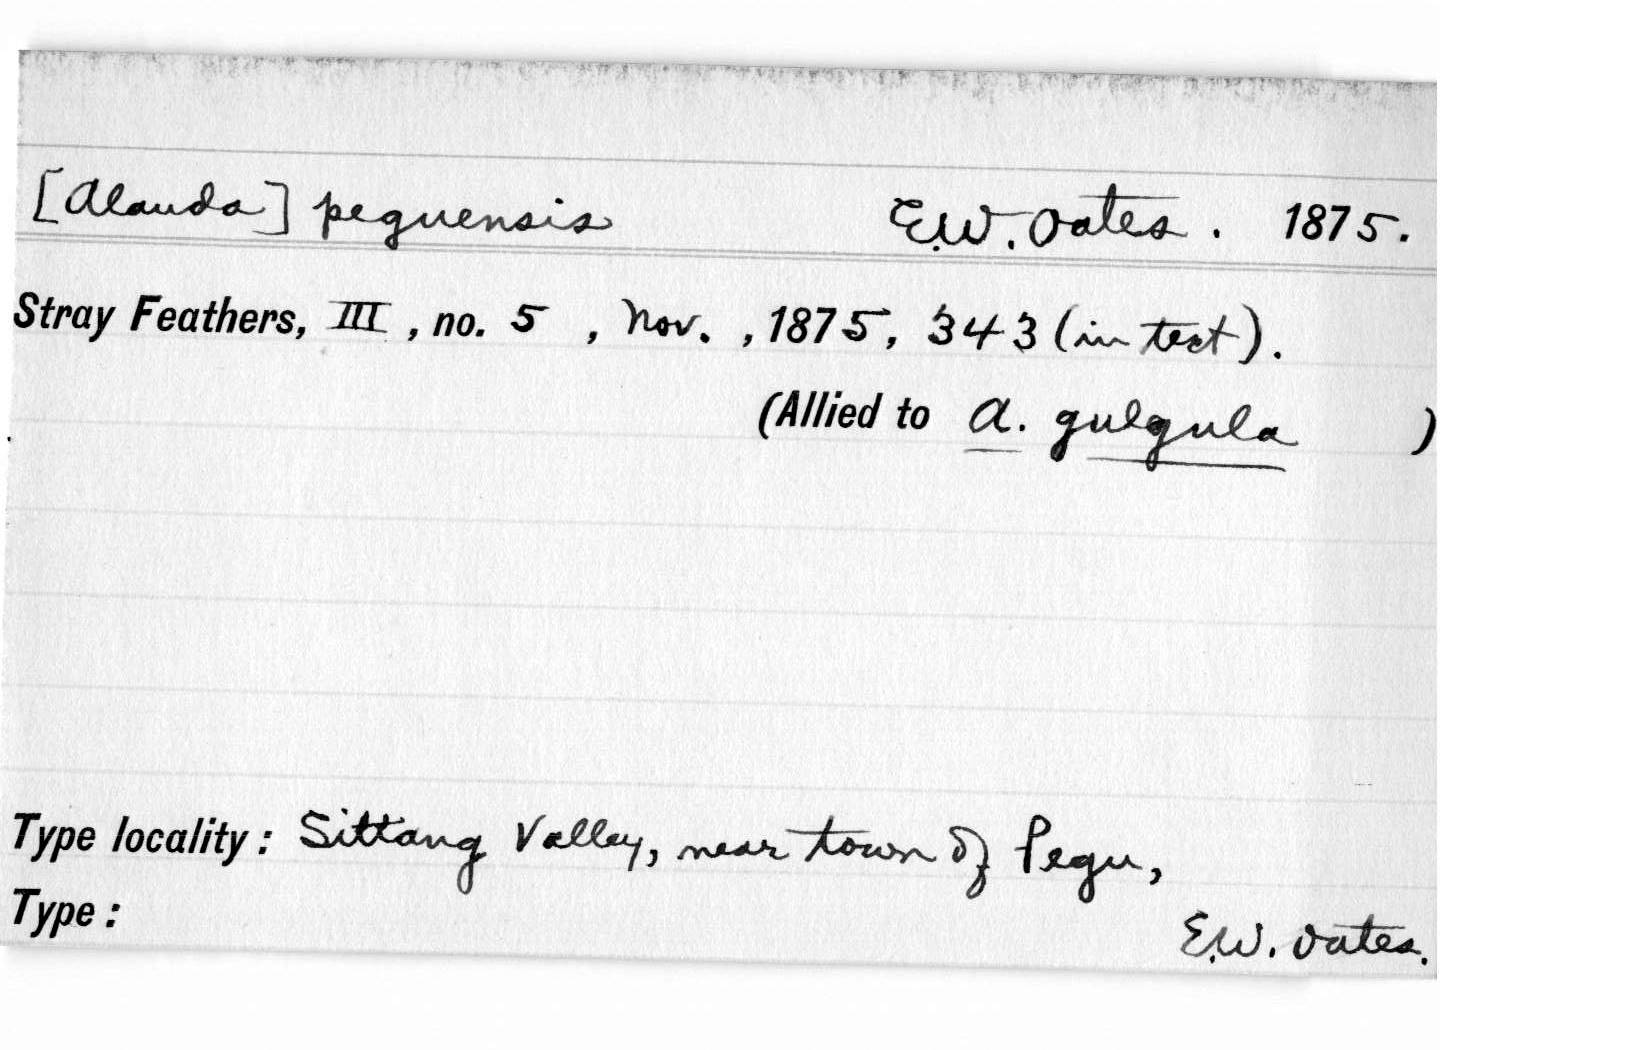 [Alauda] peguensis E.W. Oates. 1875.
Stray Feathers, III, no. 5, Nov., 1875, 343 (in text).
(Allied to A. gulgula)
Type locality: Sittang Valley, near town of Pegu,
Type: E.W. Oates.